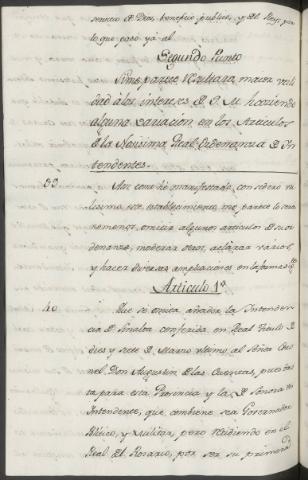 servicio de Dios, beneficio publico, y del Rey, por
lo que paso ya al
Segundo Punto
Si me parece resultara maior vali
dad à los intereses D. S. M. haciendo
alguna variacion en los Articulos
de la Novisima Real Ordenanza D. In
tendentes.
39. como hé manifestado, considero
este establecimiento, me parece lo
menos, omitir algunos articulos D. su or
denanza, moderar otros, aclarar varios,
y hacer diversas ampliaciones en la forma sig.te
Articulo 1º
40. Que se omita añadir la Intenden
cia D. Sinaloa conferida en Real Titulo D.
dies y siete D. Marzo ultimo al Señor Coro
nel Don Augustin D. las Cuentas, puesta
para esta Provincia y la D. Sonora
Intendente, que combiene sea Governador
Politico, y Militar, pero residiendo en el
Real del Rosario, por ser su primera